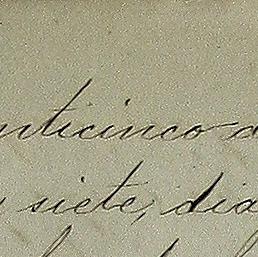 nticinco d
siete, dia